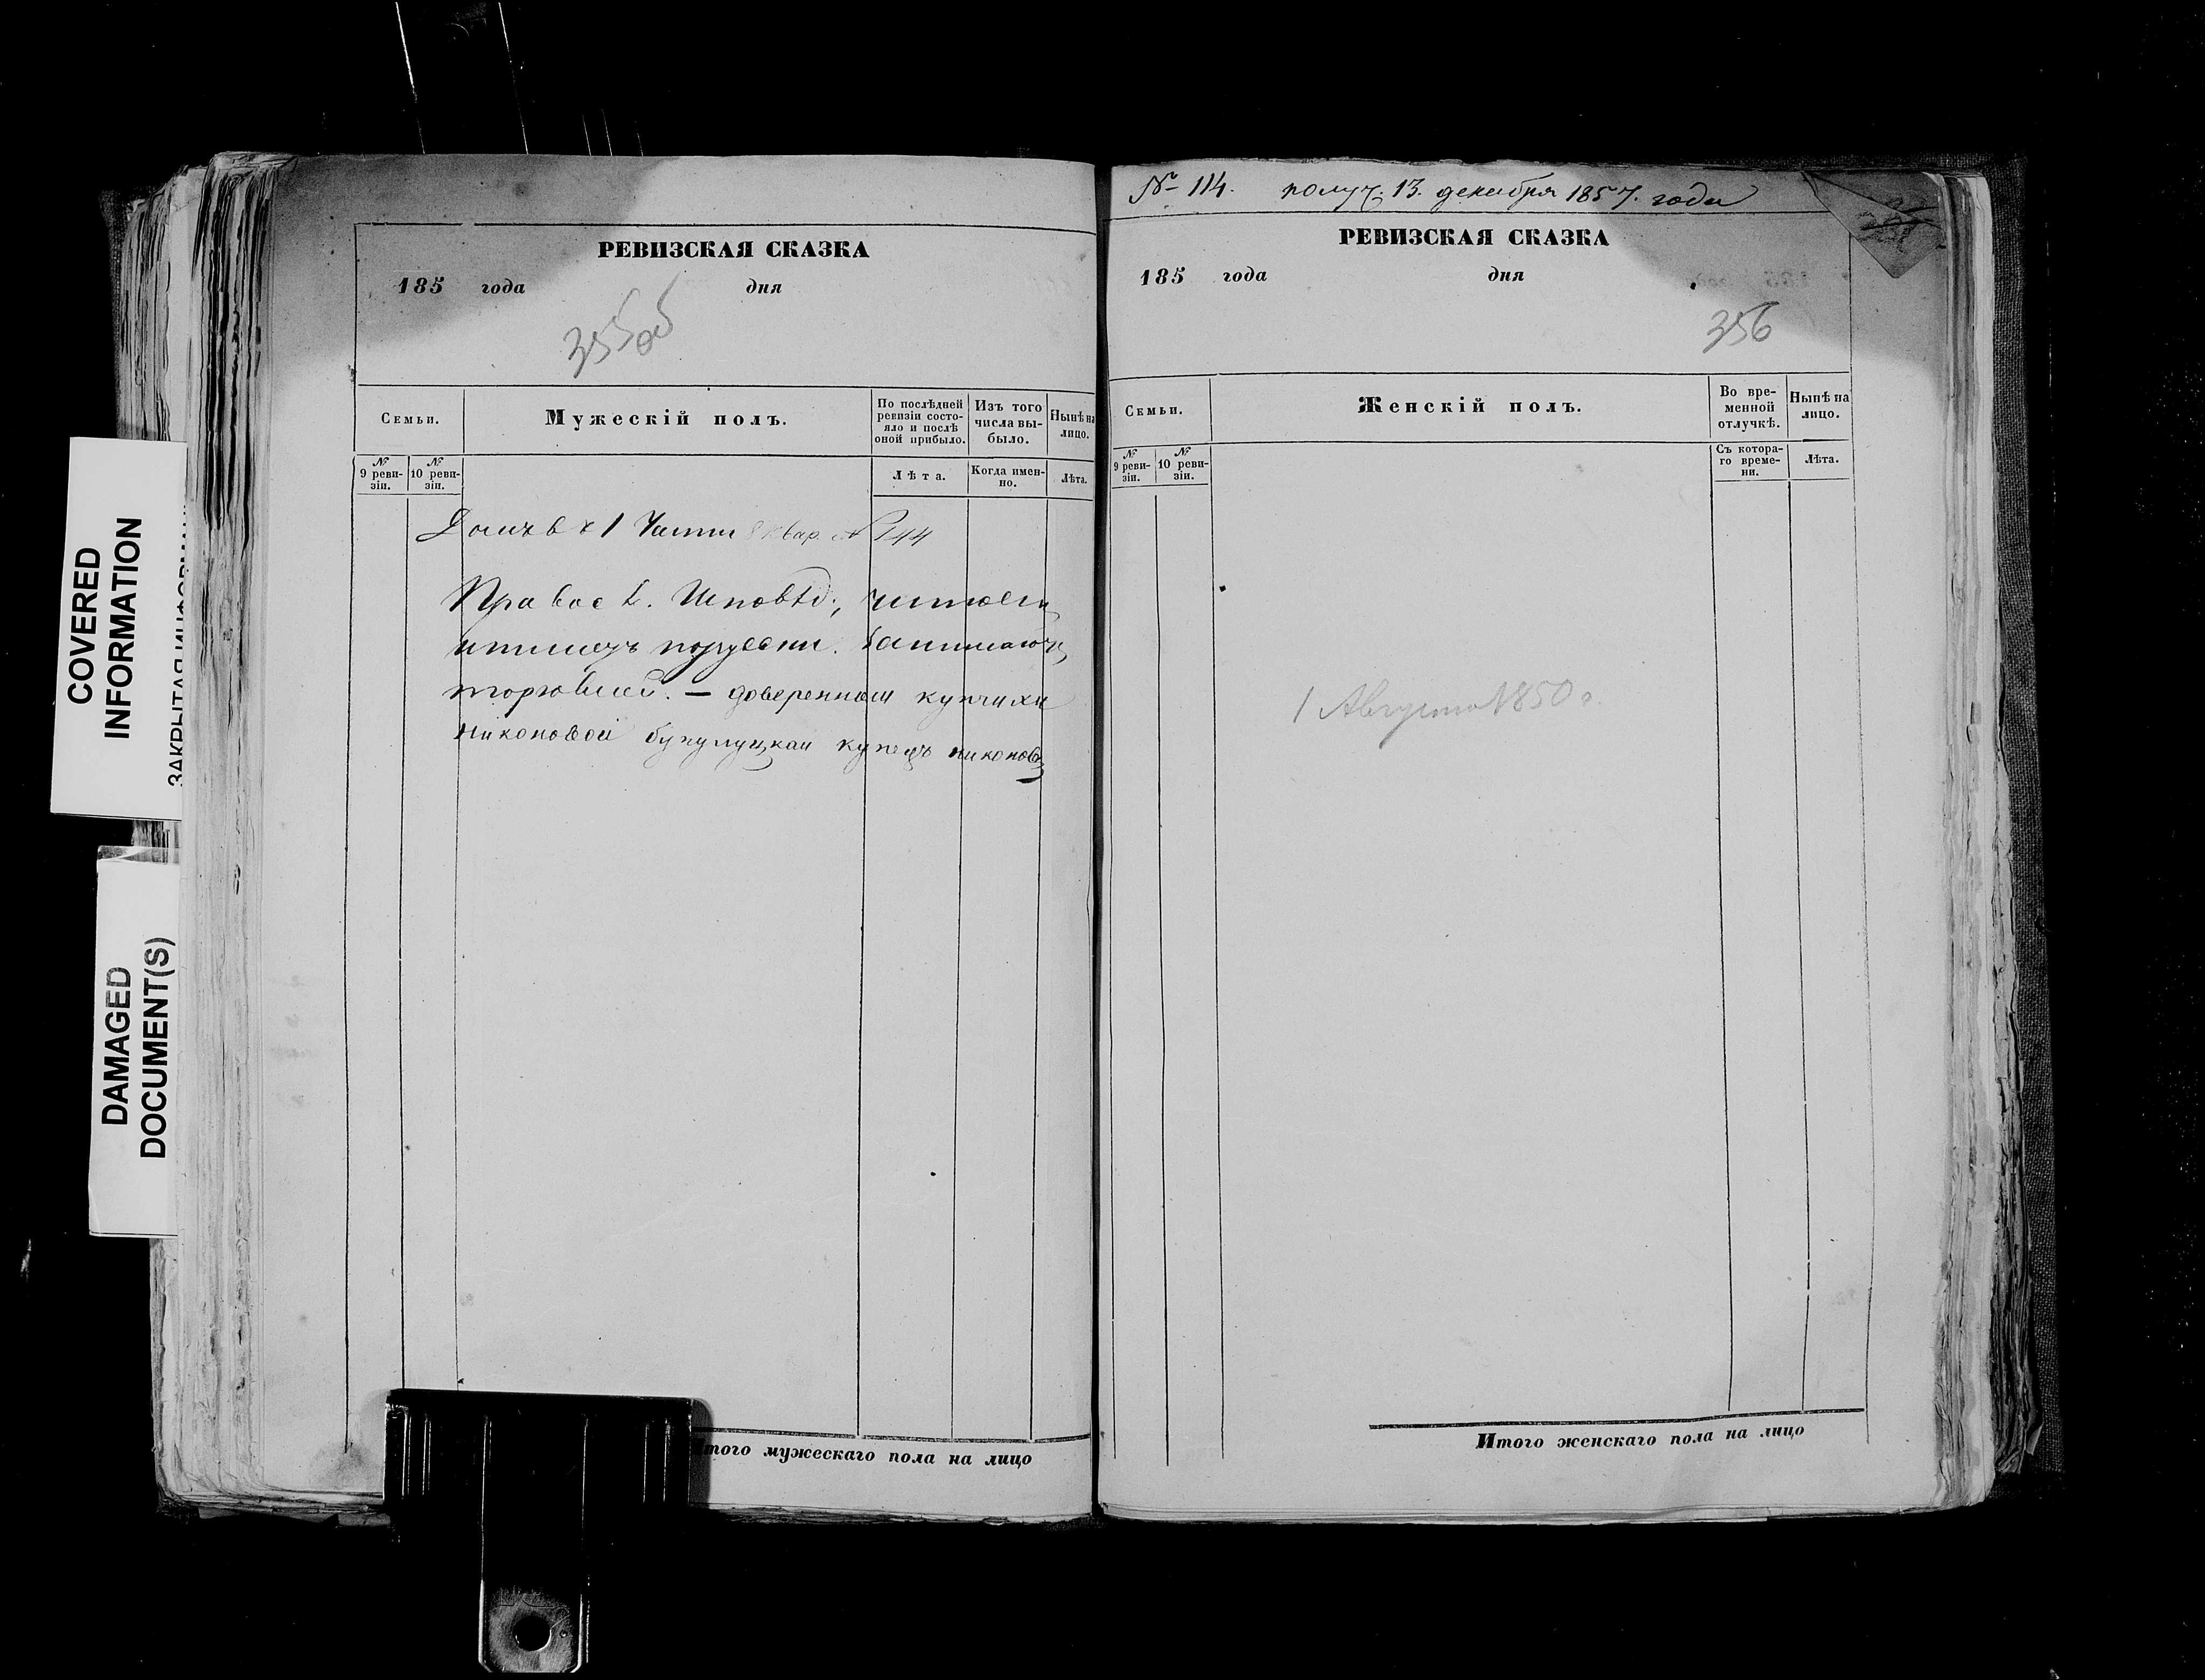 COVERED
INFORMATION
DAMAGED
DOCUMENT(S)
РЕВИЗСКАЯ СКАЗКА
185 года дня
355об
Семьи.
Мужескій полъ.
По послѣдней ревизіи состо-
яло и послѣ оной прибыло.
Изъ того числа вы-
было.
Нынѣ на лицо.
№ 9 реви-
зіи.
№ 10 реви-
зіи.
Лѣта.
Когда имен-
но.
Лѣта.
Домъ въ 1 Части 8 квар. № 144
Правосл. Исповѣд;, читаетъ
и пишетъ порусски. Занимаютъ
торговлей. — довереннаи купчихи
никоновой бузулуцкаи купецъ никоновъ
итого мужескаго пола на лицо
№ 114. получ. 13. декабря 1857. года
РЕВИЗСКАЯ СКАЗКА
185 года дня
356
Семьи.
Женскій полъ.
Во вре-
менной
отлучкѣ.
Нынѣ на
лицо.
№ 9 реви-
зіи.
№ 10 реви-
зіи.
Съ котора-
го време-
ни.
Лѣта.
1 Августа 1850 г.
Итого женскаго пола на лицо